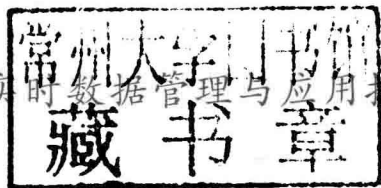 常州大学图书馆
实时数据管理与应用技
藏书章